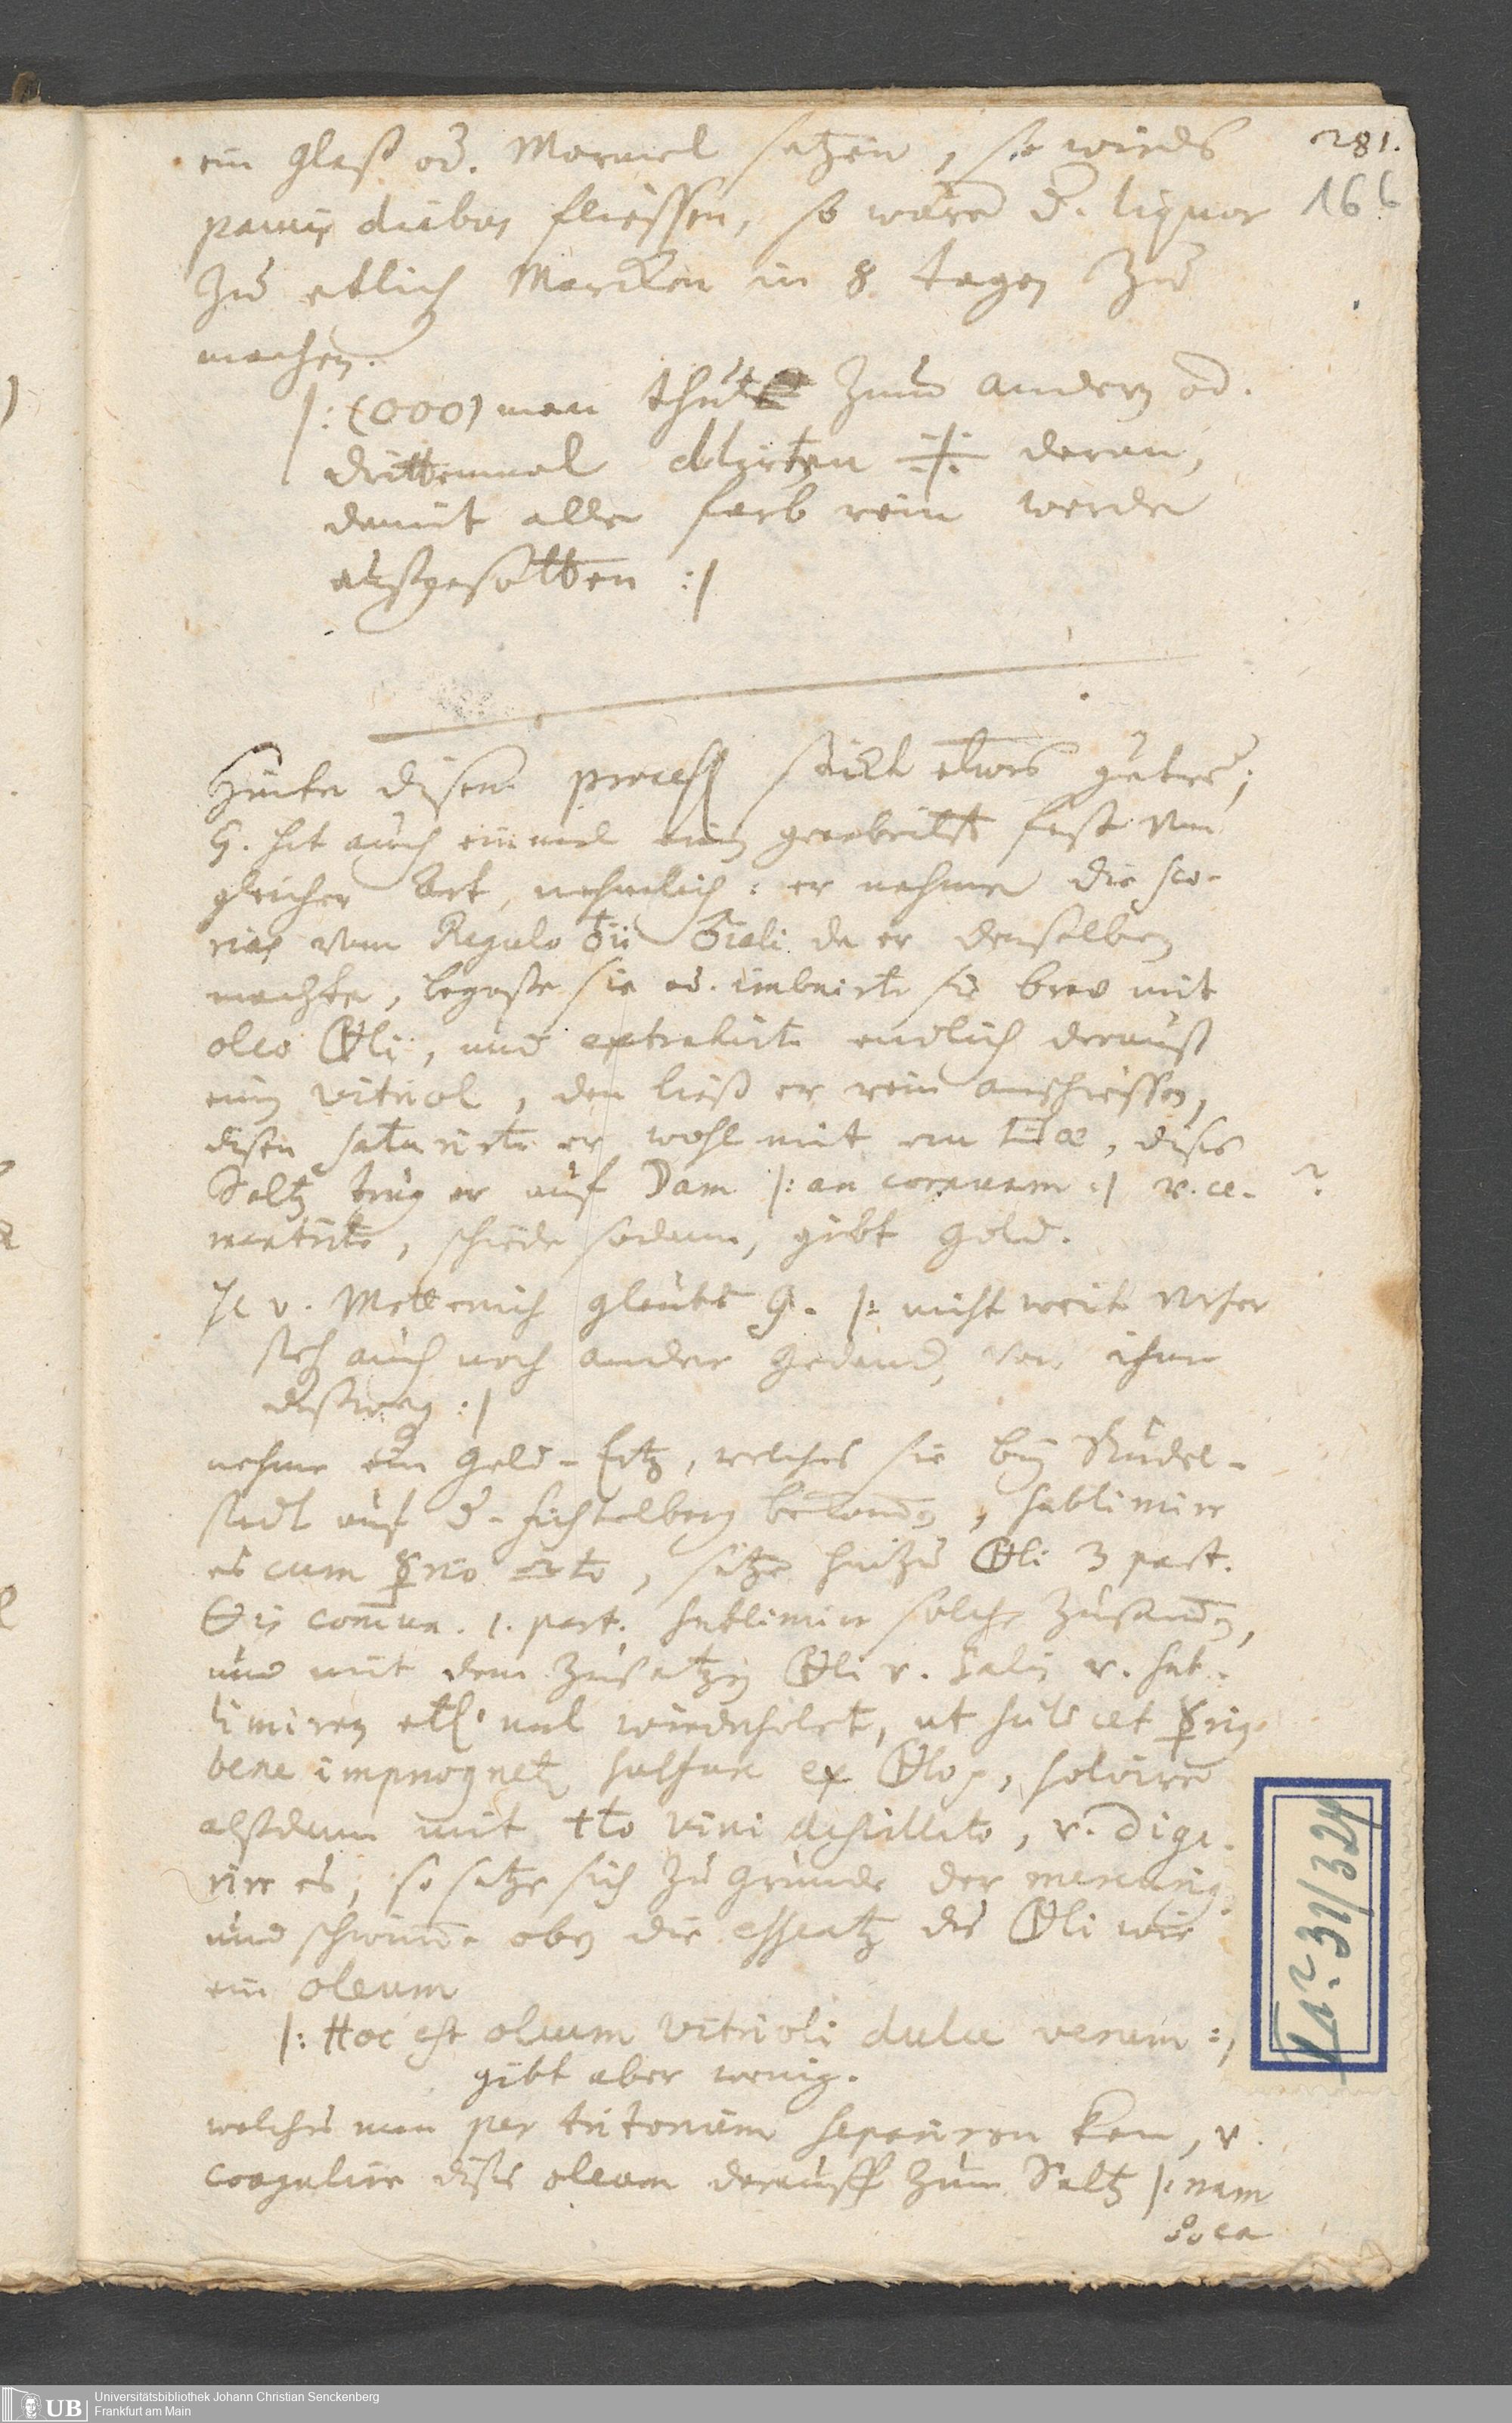 281.
166
ein glaß od. Marmel setzen, so wirds
paucis diebus fliessen, so wäre d. liquor
zu etlich Marcken in 8 tagen zu
machen.
|: (000) man thut zum andern od.
drittenmal dstirten ·/· daran,
damit alle farb rein werde
außgesotten :|
Hinter disem process stickt etwas gutes;
G. hat auch einmal ein gearbeitet fast von
gleicher Art, nehmlich: er nahme die sco-
rias vom Regulo ♁ii ♂iali da er denselben
machte, begosse sie od. imbuirte sie brav mit
oleo 🜖li, und extrahirte endlich darauß
ein vitriol, den ließ er rein anschiessen,
disen saturirte er wohl mit, dises
Saltz trug er auf Dam |: an coronam :| v. ce- ?
mentirte, schiede sodann, gibt gold.
H v. Metternich glaubt G. |: nicht weit vorher
steh auch noch andere gedanck, von ihme
:|
nehme ein Gold-Ertz, welches sie bey Rudel-
stadt auf d. Fichtelberg bekommen, sublimire
es cum ☿rio, setze hinzu 🜖li 3 part.
🜔is commun. 1. part. sublimire solche zusammen,
und mit dem zusetzen 🜖li v. Salis v. sub-
limiren etl. mal wiederholet, ut scilicet ☿rius
bene impraegnet. sulfure ex 🜖lo, solvire
alßdann mit ✢to vini destillato, v. dige-
rire es, so setze sich zu grunde der mercurius
und schwimme oben die essentz des 🜖li wie
ein oleum
|: Hoc est oleum vitrioli dulce verum :|
gibt aber wenig.
welches man per tritorium separiren kan, v.
coagulire dises oleum darauff zum Saltz |: nam
postea
UB
Universitätsbibliothek Johann Christian Senckenberg
Frankfurt am Main